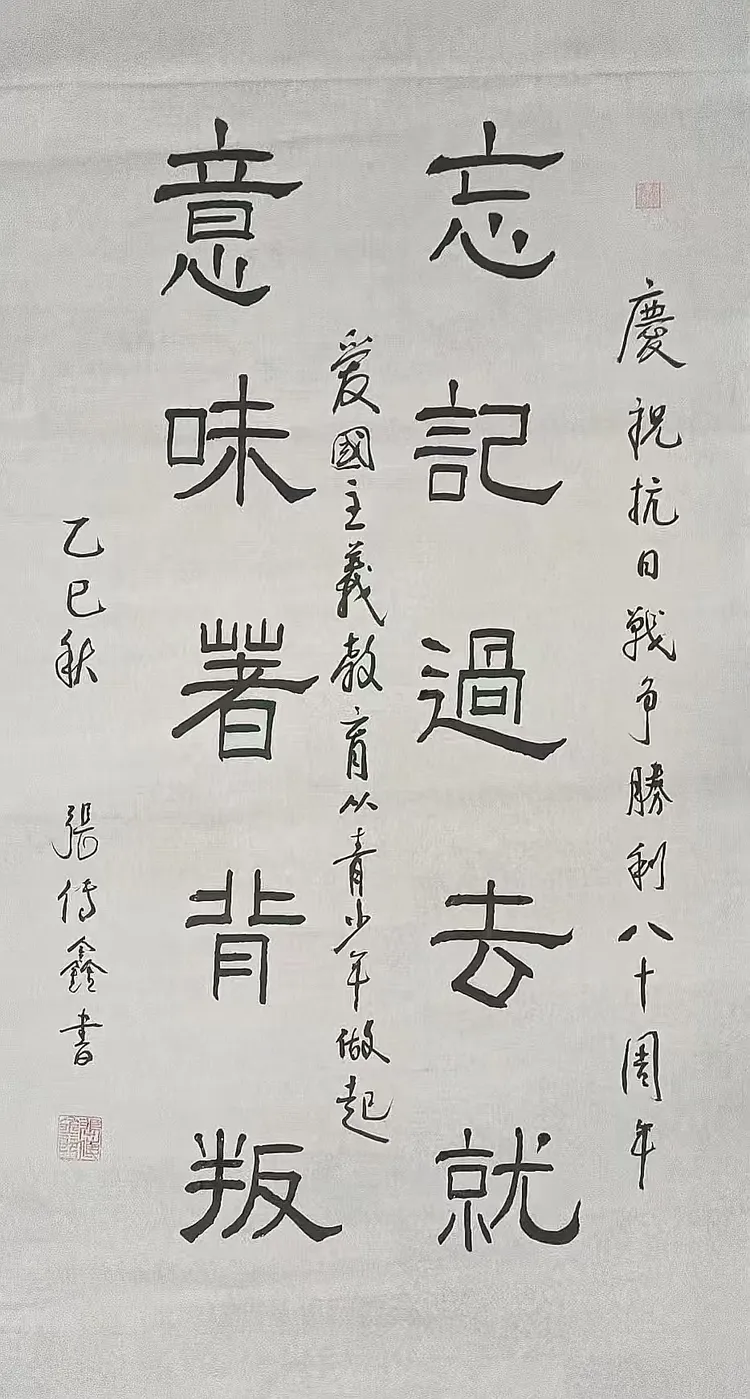 慶祝抗日戰争勝利八十周年
忘記過去就
爱國主義教育从青少年做起
意味著背叛
乙巳秋
張傳鑫書